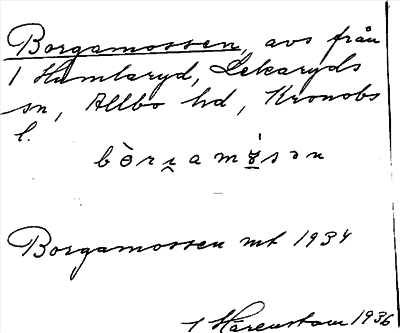 Borgamossen, avs från
1 Humlaryd, Lekaryds
sn, Allbo hd, Kronobs
l.
bòrɪ̯amɷ́sən
Borgamossen mt 1934
Härenstam 1936